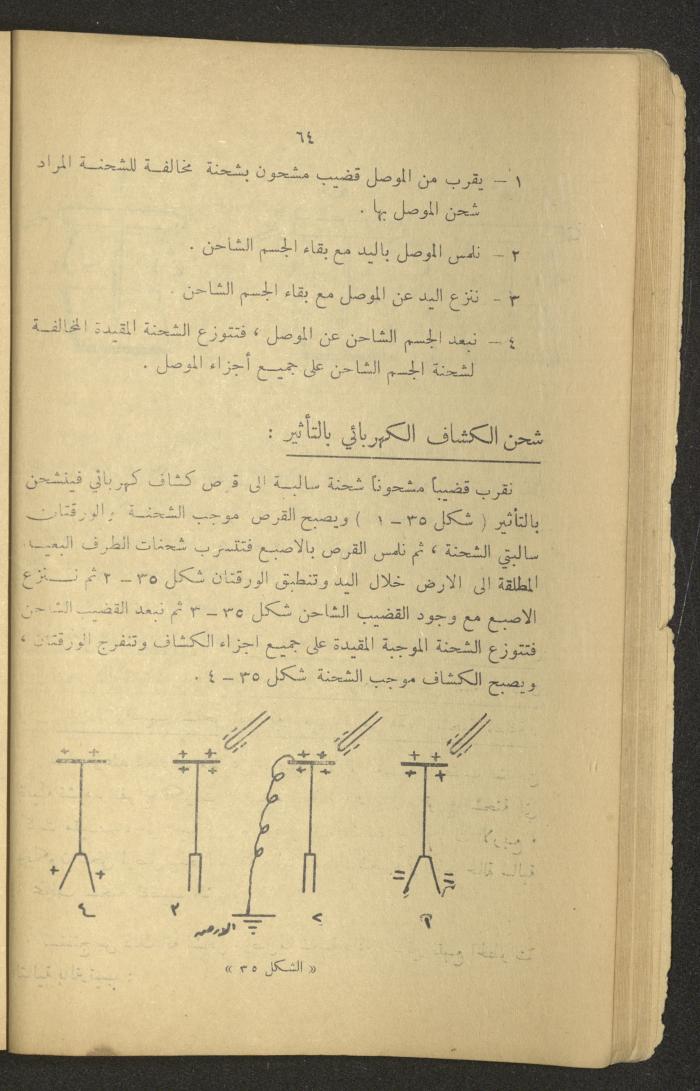 ٦٤
١ – يقرب من الموصل قضيب مشحون بشحنة مخالفـة للشحنـة المراد
شحن الموصل بها .
٢ – نلمس الموصل باليد مع بقاء الجسم الشاحن .
٣ – ننزع اليد عن الموصل مع بقاء الجسم الشاحن .
٤ – نبعد الجسم الشاحن عن الموصل ، فتتوزع الشحنة المقيدة المخالفـة
لشحنة الجسم الشاحن على جميـع أجزاء الموصل .
شحن الكشاف الكهربائي بالتأثير :
نقرب قضيباً مشحوناً شحنة سالبـة الى قرص كشاف كهربائي فينشحن
بالتأثير ( شكل ٣٥ – ١ ) ويصبح القرص موجب الشحنـة والورقتان
سالبتي الشحنة ، ثم نلمس القرص بالاصبع فتتسرب شحنات الطرف البعيـد
المطلقة الى الارض خلال اليد وتنطبق الورقتان شكل ٣٥ – ٢ ثم نـنزع
الاصبع مع وجود القضيب الشاحن شكل ٣٥ – ٣ ثم نبعد القضيب الشاحن
فتتوزع الشحنة الموجبة المقيدة على جميـع اجزاء الكشاف وتنفرج الورقتان ،
ويصبح الكشاف موجب الشحنة شكل ٣٥ – ٤ .
١
٢
الارض
٣
٤
« الشكل ٣٥ »